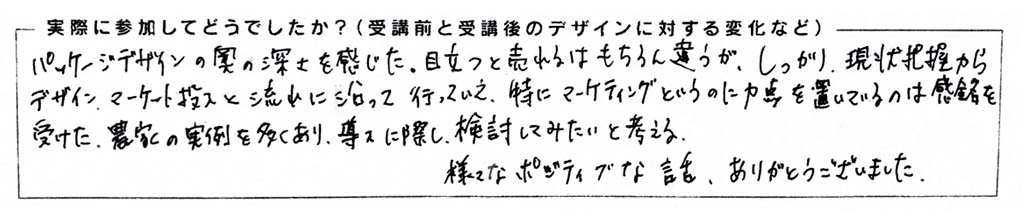 実際に参加してどうでしたか？（受講前と受講後のデザインに対する変化など）
パッケージデザインの奥の深さを感じた。目立つと売れるはもちろん違うが、しっかり、現状把握から
デザイン、マーケット投入と流れに沿って行っていえ、特にマーケティングというのに力点を置いているのは感銘を
受けた。農家の実例を多くあり、導入に際し、検討してみたいと考える。
様々なポジティブな話、ありがとうございました。